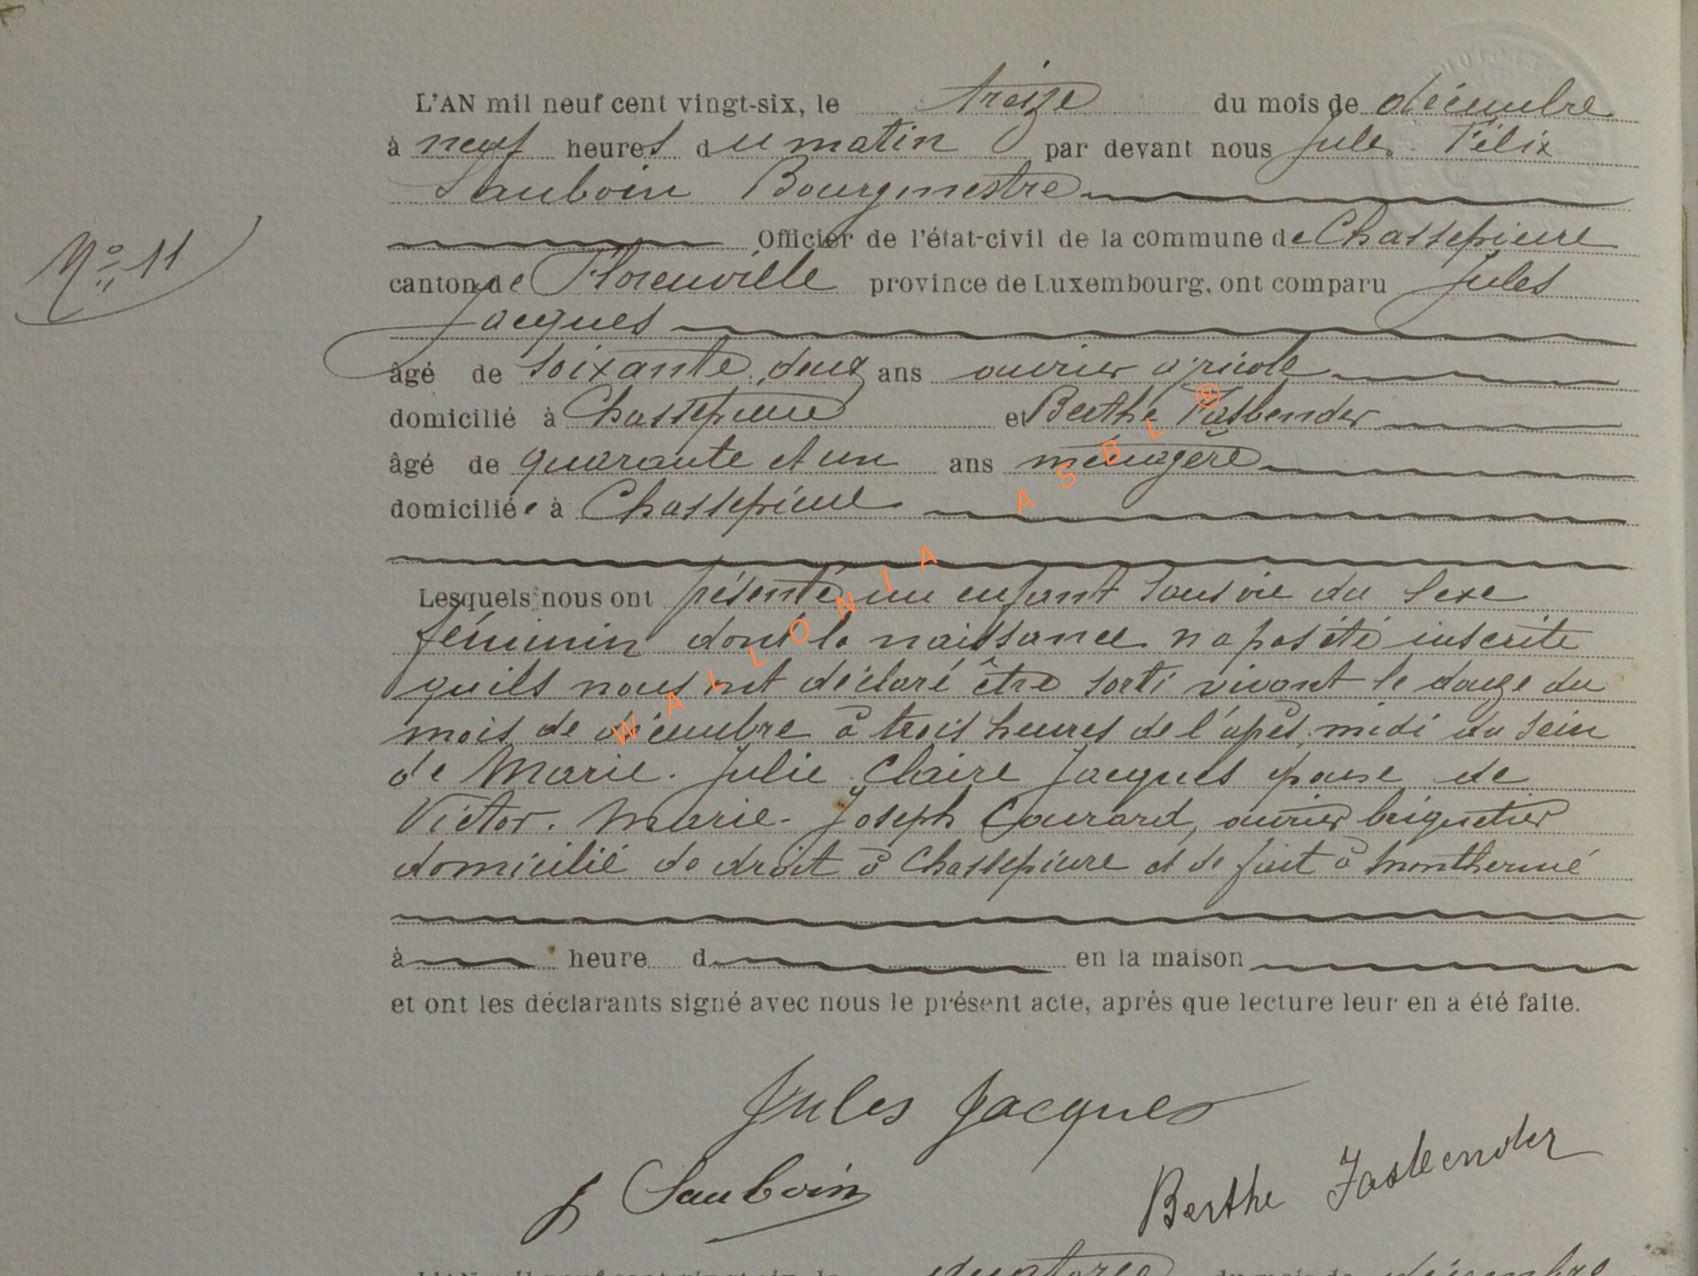 L'AN mil neuf cent vingt-six, le treize du mois de décembre
à neuf heures du matin par devant nous Jules Félix
Sauboin Bourgmestre
N° 11
Officier de l'état-civil de la commune de Chassepierre
canton de Florenville province de Luxembourg, ont comparu Jules
Jacques
âgé de soixante deux ans ouvrier agricole
domicilié à Chassepierre et Berthe Fasbender
âgé de quarante et un ans ménagère
domiciliée à Chassepierre
Lesquels nous ont présenté un enfant sans vie du sexe
féminin dont la naissance n'a pas été inscrite
qu'ils nous ont déclaré être sorti vivant le douze du
mois de décembre à trois heures de l'après-midi du sein
de Marie-Julie-Claire Jacques épouse de
Victor-Marie-Joseph Courard, ouvrier briquetier
domicilié de droit à Chassepierre et de fait à Monthermé
à heure d en la maison
et ont les déclarants signé avec nous le présent acte, après que lecture leur en a été faite.
Jules Jacques
J Sauboin
Berthe Fasbender
L'AN mil neuf cent vingt-six, le quatorze du mois de décembre
WALLONIA ASBL ®